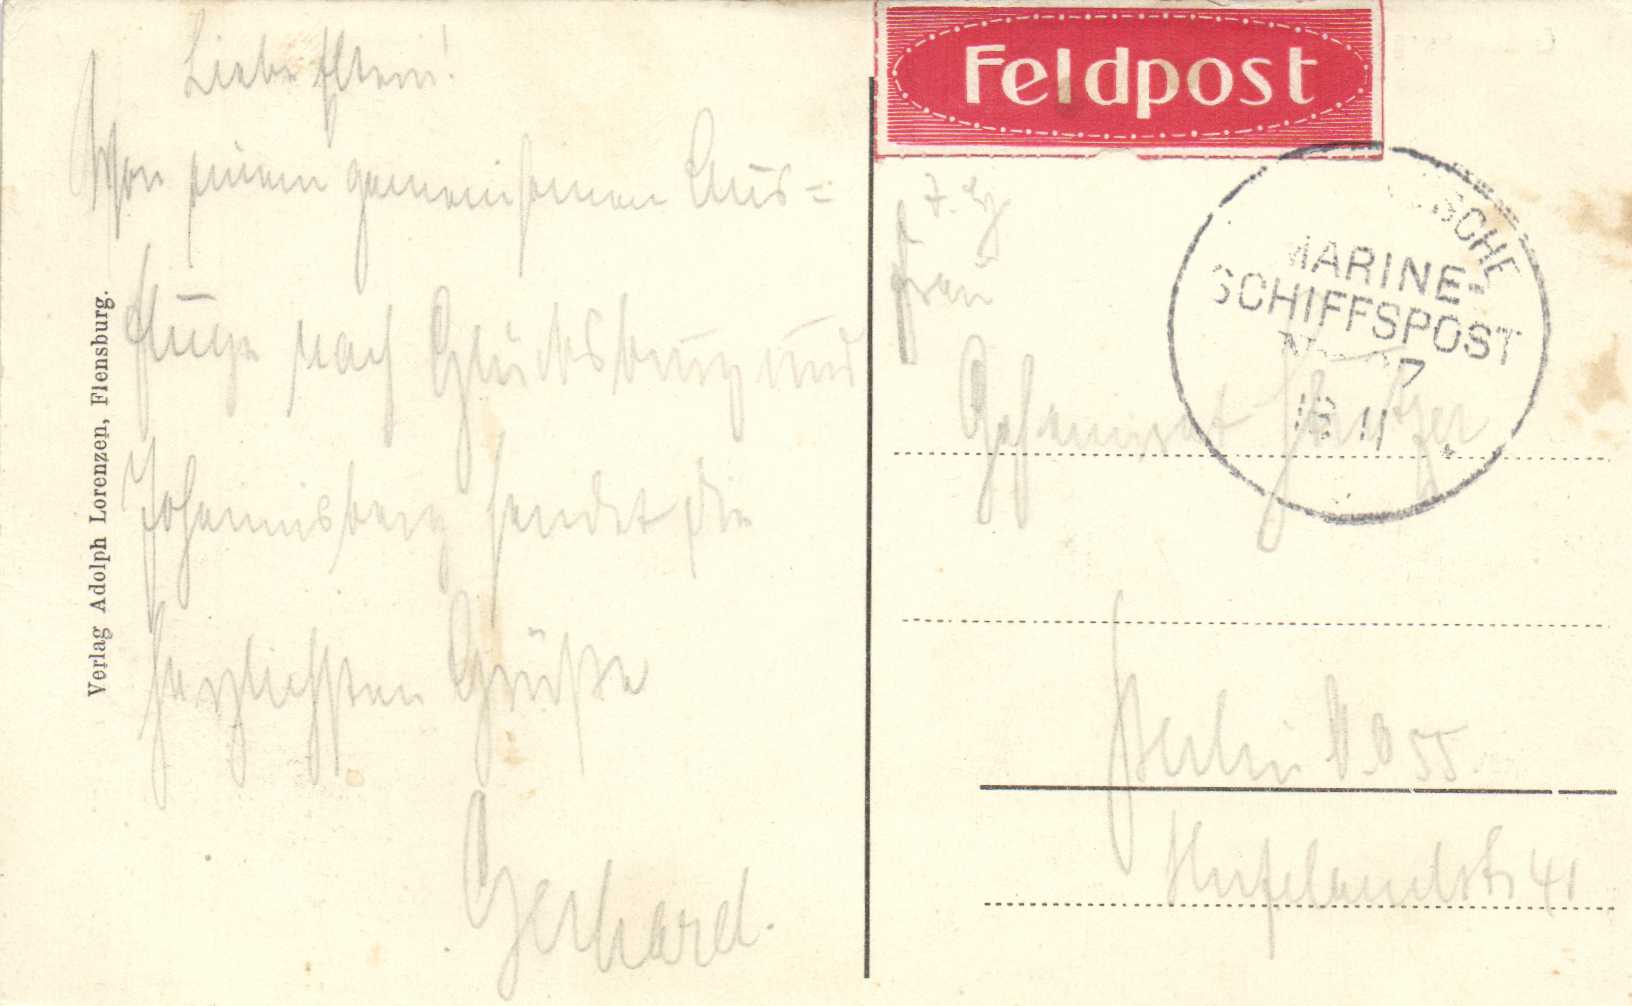 Liebe Eltern!
Von einem gemeinsamen Aus=
fluge nach Glücksburg und
Johannisberg sendet die
herzlichsten Grüße
Gerhard.
Verlag Adolph Lorenzen, Flensburg.
Feldpost
SCHE
MARINE-
SCHIFFSPOST
7
18 11
Frau
Geheimrat
Berlin NO 55
Hufelandstr 41